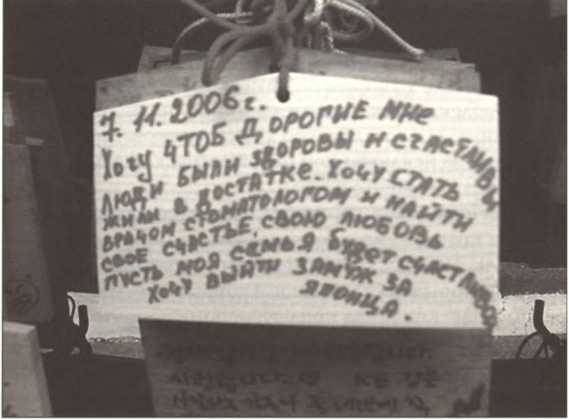 7. 11. 2006 г.
Хочу чтоб дорогие мне
люди были здоровы и счастливы
жили в достатке. Хочу стать
врачом стоматологом и найти
свое счастье, свою любовь
пусть моя семья будет счастливой
хочу выйти замуж за
японца.